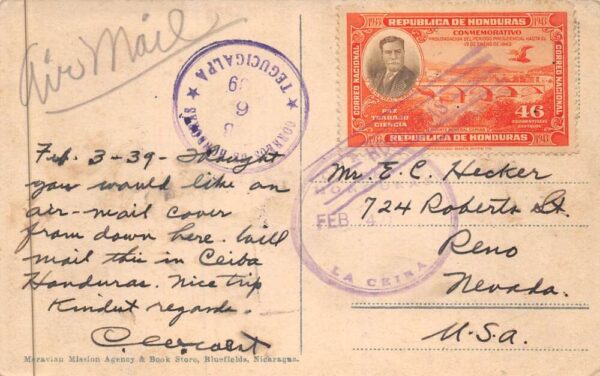 Air Mail
★ TEGUCIGALPA ★
39
6
1937 REPUBLICA DE HONDURAS 1943
CONMEMORATIVO
PROLONGACION DEL PERIODO PRESIDENCIAL HASTA EL
1º DE ENERO DE 1943
CORREO NACIONAL
CORREO NACIONAL
PAZ
TRABAJO
CIENCIA
46
REPUBLICA DE HONDURAS
FEB 4
LA CEIBA
Feb. 3-39- Thought
you would like an
air-mail cover
from down here. Will
mail this in Ceiba
Honduras. Nice trip
Kindest regards.
Mr. E. C. Hecker
724 Roberts St.
Reno
Nevada.
U.S.a.
Moravian Mission Agency & Book Store, Bluefields, Nicaragua.